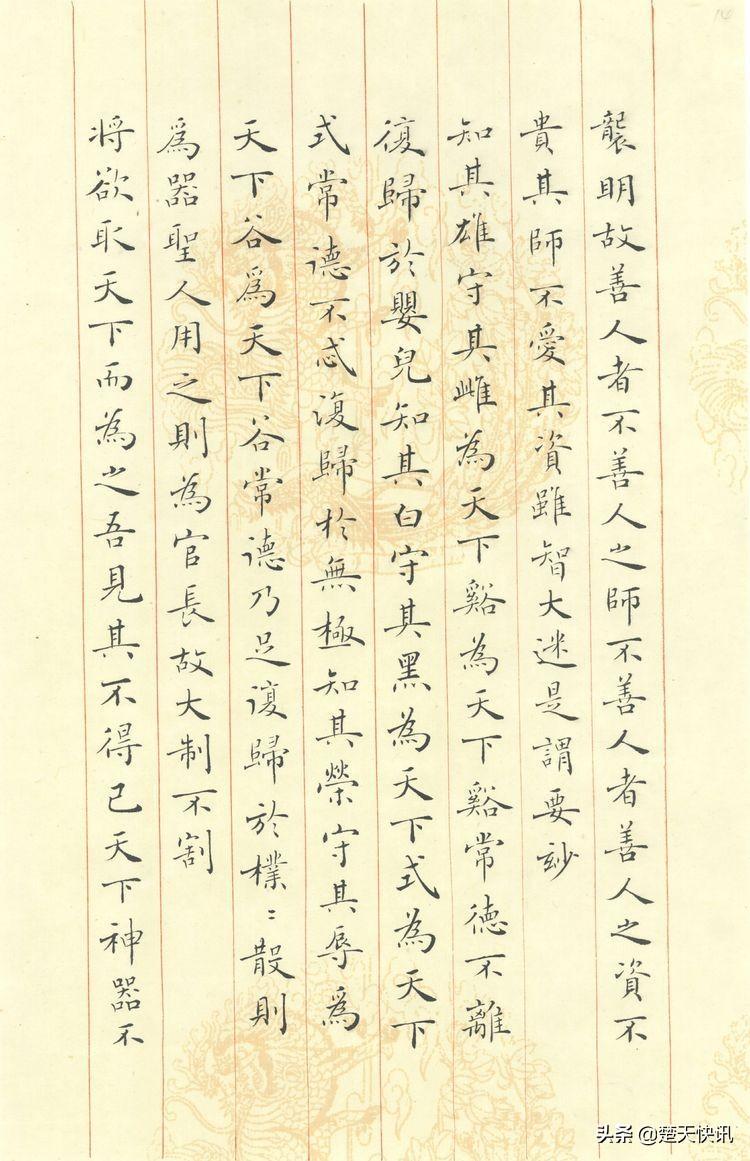 襲明故善人者不善人之師不善人者善人之資不
貴其師不愛其資雖智大迷是謂要玅
知其雄守其雌為天下谿為天下谿常德不離
復歸於嬰兒知其白守其黑為天下式為天下
式常德不忒復歸於無極知其榮守其辱為
天下谷爲天下谷常德乃足復歸於樸〻散則
爲器聖人用之則為官長故大制不割
将欲取天下而為之吾見其不得已天下神器不
14
头条 @楚天快讯